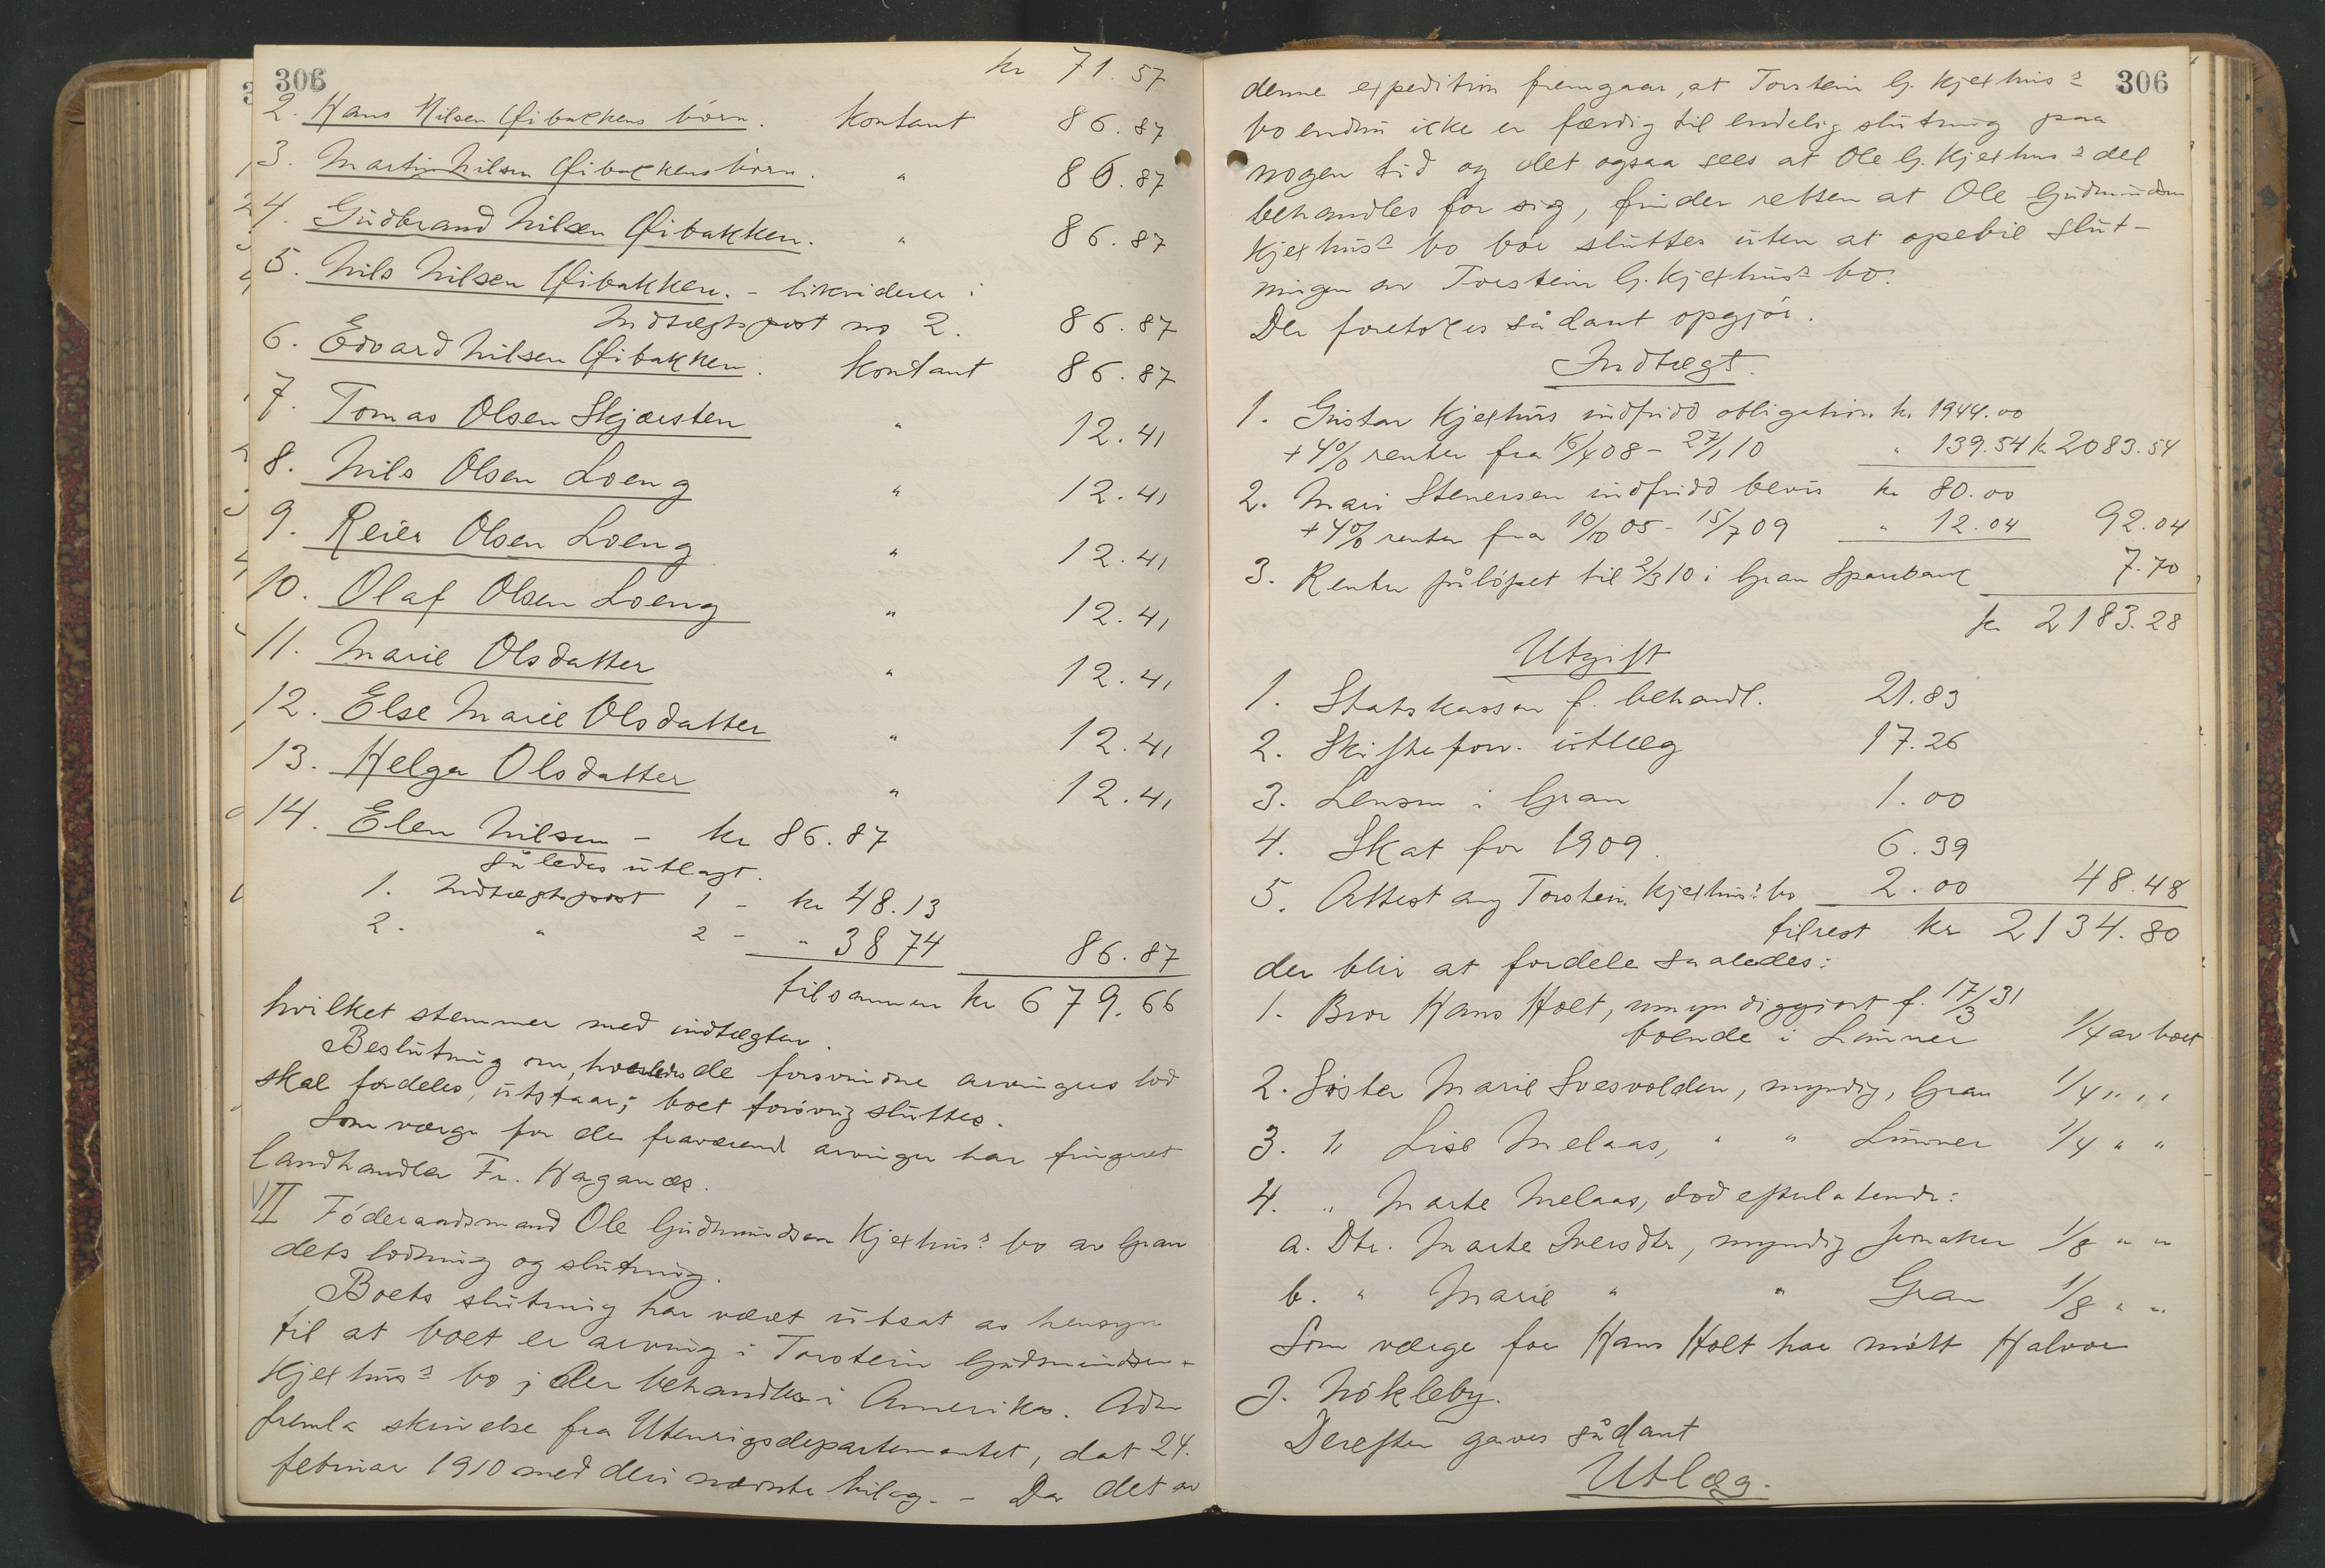 306
kr 71.57
2. Hans Nilsen Øibakkens börn. kontant 86.87
3. Martin Nilsen Øibakkens börn. " 86.87
4. Gudbrand Nilsen Øibakken. " 86.87
5. Nils Nilsen Øibakken. - likviderer i
Indtægtspost no 2. 86.87
6. Edvard Nilsen Øibakken. kontant 86.87
7. Tomas Olsen Skjærsten " 12.41
8. Nils Olsen Loeng " 12.41
9. Reier Olsen Loeng " 12.41
10. Olaf Olsen Loeng " 12.41
11. Marie Olsdatter " 12.41
12. Else Marie Olsdatter " 12.41
13. Helga Olsdatter " 12.41
14. Elen Nilsen - kr 86.87
således utlagt.
1. Indtægtspost 1 - kr 48.13
2. " 2 - " 38 74 86.87
tilsammen kr 679.66
hvilket stemmer med indtægten.
Beslutning om, hvorledes de forsvundne arvingers lod
skal fordeles, utstaar; boet forövrig sluttes.
Som værge for de fraværende arvinger har fungeret
landhandler Fr. Haganæs.
VII Föderaadsmand Ole Gudmundsen Kjexhus's bo av Gran
dets lodning og slutning.
Boets slutning har været utsat av hensyn
til at boet er arving i Torstein Gudmundsen
Kjexhus's bo; der behandles i Amerika. Adm
fremla skrivelse fra Utenrigsdepartementet, dat 24.
februar 1910 med deri nævnte bilag. - Da det av
306
denne expedition fremgaar, at Torstein G. Kjexhus's
bo endnu ikke er færdig til endelig slutning paa
nogen tid og det ogsaa sees at Ole G. Kjexhus's del
behandles for sig, finder retten at Ole Gudmundsen
Kjexhus's bo bör sluttes uten at opebie slut-
ningen av Torstein G. Kjexhus's bo.
Der foretokes sådant opgjör.
Indtægt.
1. Gustav Kjexhus indfridd obligation kr. 1944.00
+ 4% renter fra 16/4 08 - 27/1 10 " 139.54 kr 2083.54
2. Mari Stenersen indfridd bevis kr 80.00
+ 4% renter fra 10/10 05 - 15/7 09 " 12.04 92.04
3. Renter påløpet til 2/3 10 i Gran Sparebank 7.70
kr 2183.28
Utgift
1. Statskassen f. behandl. 21.83
2. Skifteforv. utlæg 17.26
3. Lensm i Gran 1.00
4. Skat for 1909. 6.39
5. Attest ang Torstein Kjexhus's bo 2.00 48.48
tilrest kr 2134.80
der blir at fordele saaledes:
1. Bror Hans Holt, umyndiggjort f. 17/3 31
boende i Lunner 1/4 av boet
2. Söster Marie Svesvolden, myndig, Gran 1/4 " "
3. " Lise Melaas, " " Lunner 1/4 " "
4. " Marte Melaas, död efterlatende:
a. Dtr. Marte Iversdtr, myndig Jevnaker 1/8 " "
b. " Marie " " Gran 1/8 " "
Som værge for Hans Holt har mött Halvor
J. Nökleby.
Derefter gaves sådant
Utlæg.